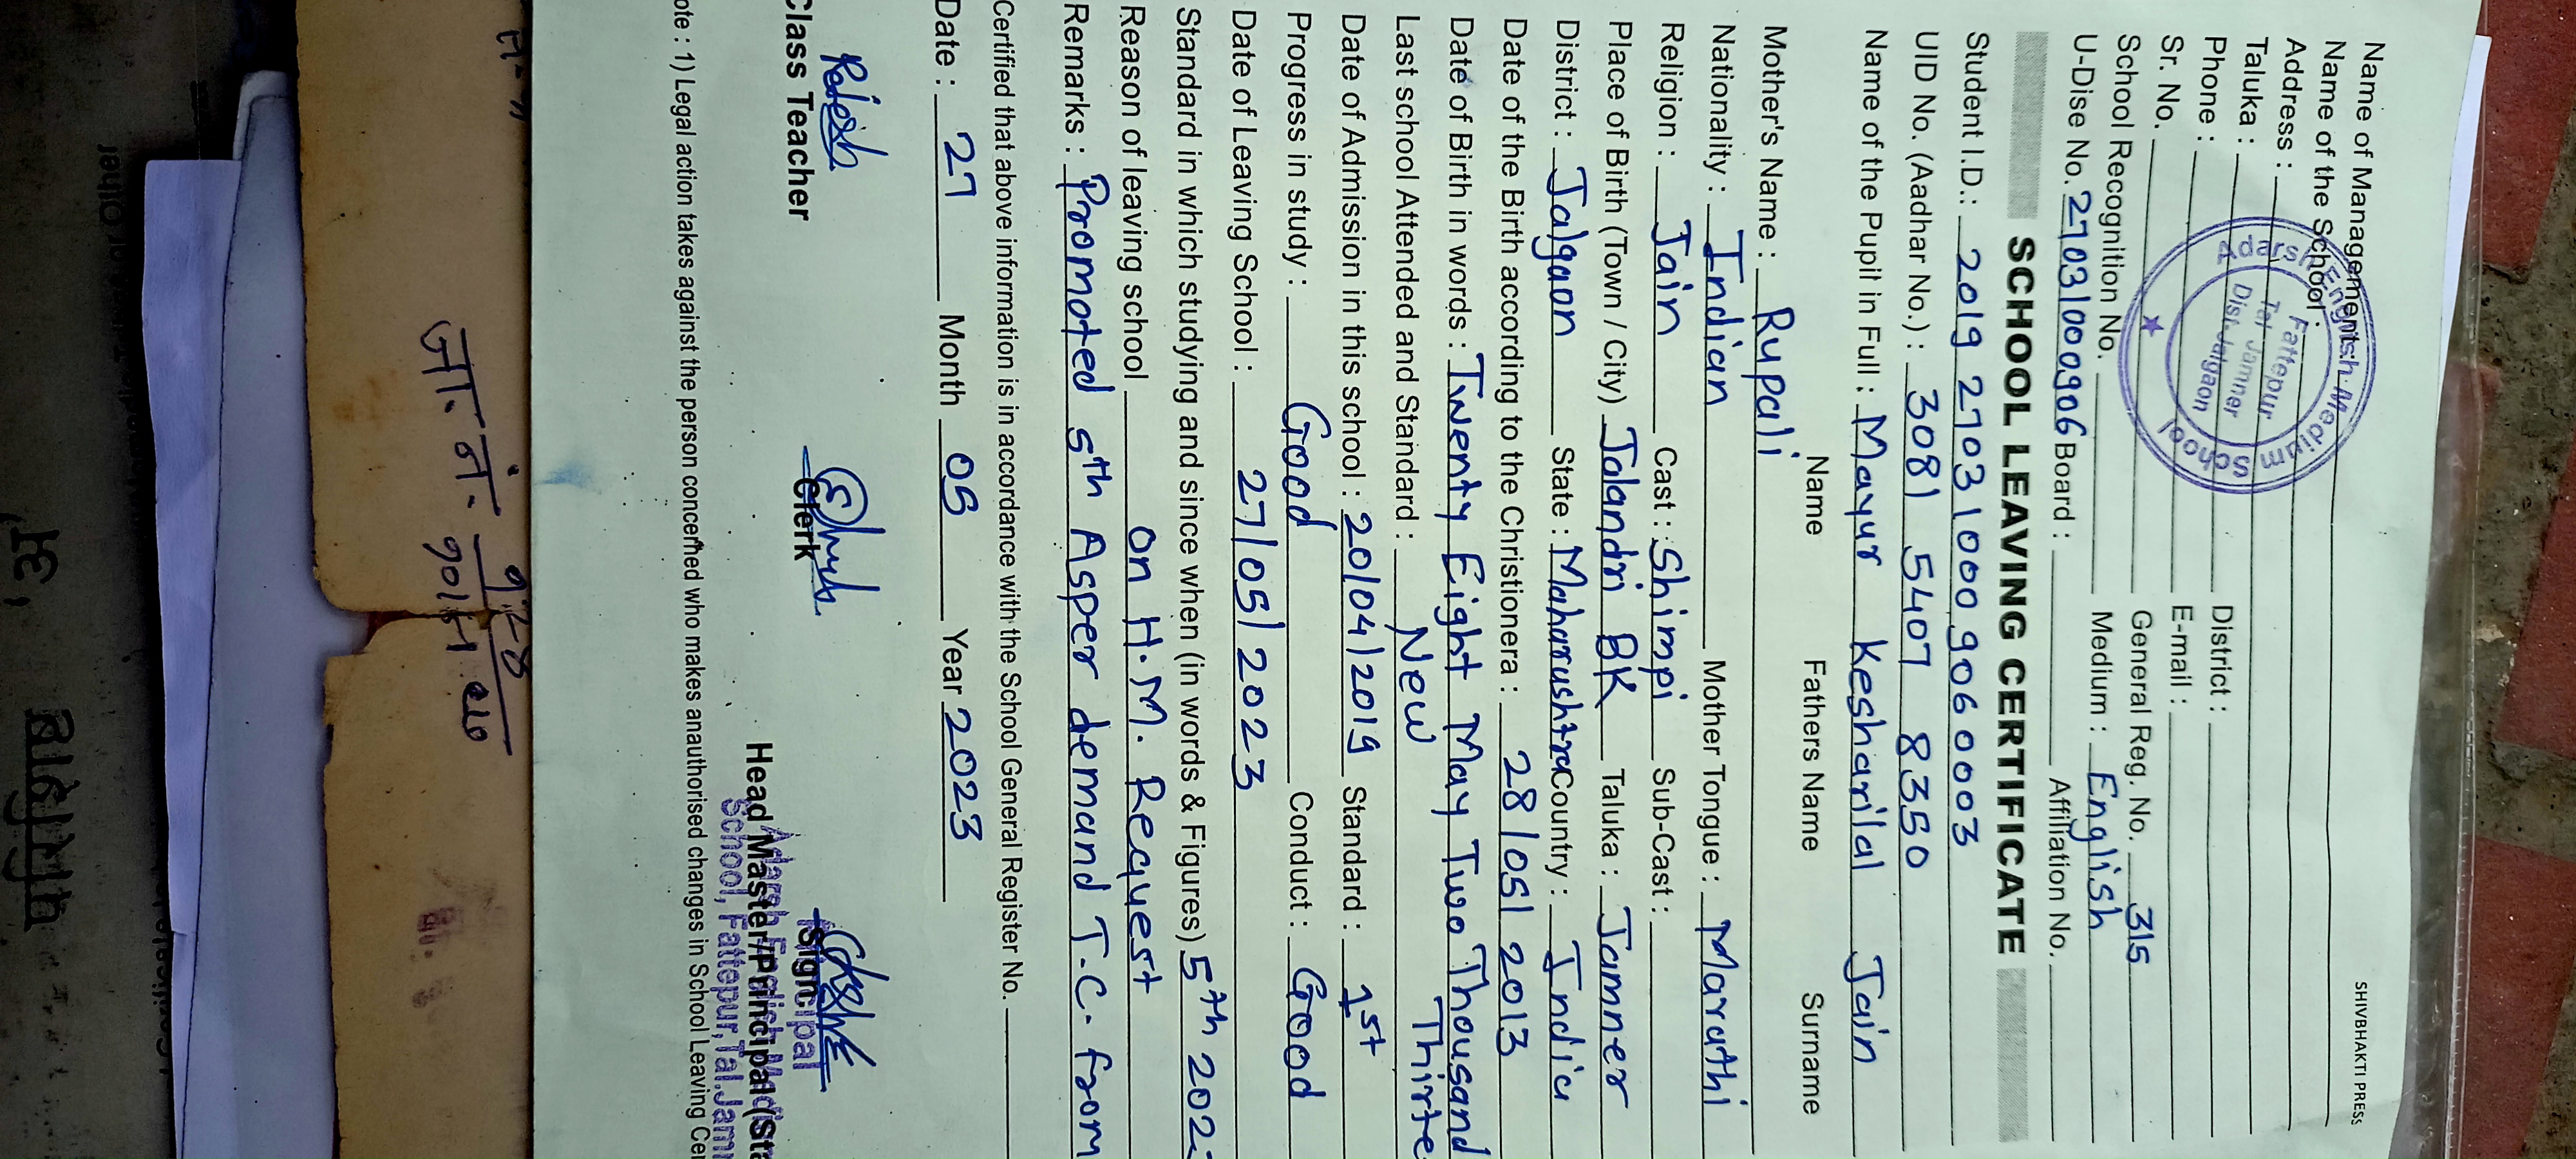 SHIVBHAKTI PRESS
Name of Management :
Name of the School :
Address :
Taluka : District :
Phone : E-mail :
Sr. No. General Reg. No. 315
School Recognition No. Medium : English
U-Dise No. 27031000906 Board : Affiliation No.
Adarsh English Medium School
Fattepur
Tal Jamner
Dist. Jalgaon
SCHOOL LEAVING CERTIFICATE
Student I.D.: 2019 27031000 906 0003
UID No. (Aadhar No.) : 3081 5407 8350
Name of the Pupit in Full : Mayur Kesharilal Jain
Name Fathers Name Surname
Mother's Name : Rupali
Nationality : Indian Mother Tongue : Marathi
Religion : Jain Cast : Shimpi Sub-Cast :
Place of Birth (Town / City) Jalandri BK Taluka : Jamner
District : Jalgaon State : Maharashtra Country : India
Date of the Birth according to the Christionera : 28/05/2013
Date of Birth in words : Twenty Eight May Two Thousand
Thirte
Last school Attended and Standard : New
Date of Admission in this school : 20/04/2019 Standard : 1st
Progress in study : Good Conduct : Good
Date of Leaving School : 27/05/2023
Standard in which studying and since when (in words & Figures) 5th 202
Reason of leaving school on H.M. Request
Remarks : Promoted 5th Asper demand T.C. from
Certified that above information is in accordance with the School General Register No.
Date : 27 Month 05 Year 2023
Rajesh
Class Teacher Clerk Sign.
Head Master/Principal (Sta
Principal
Adarsh English Me
School, Fattepur, Tal.Jam
ote : 1) Legal action takes against the person concerned who makes anauthorised changes in School Leaving Cer
जा. नं.